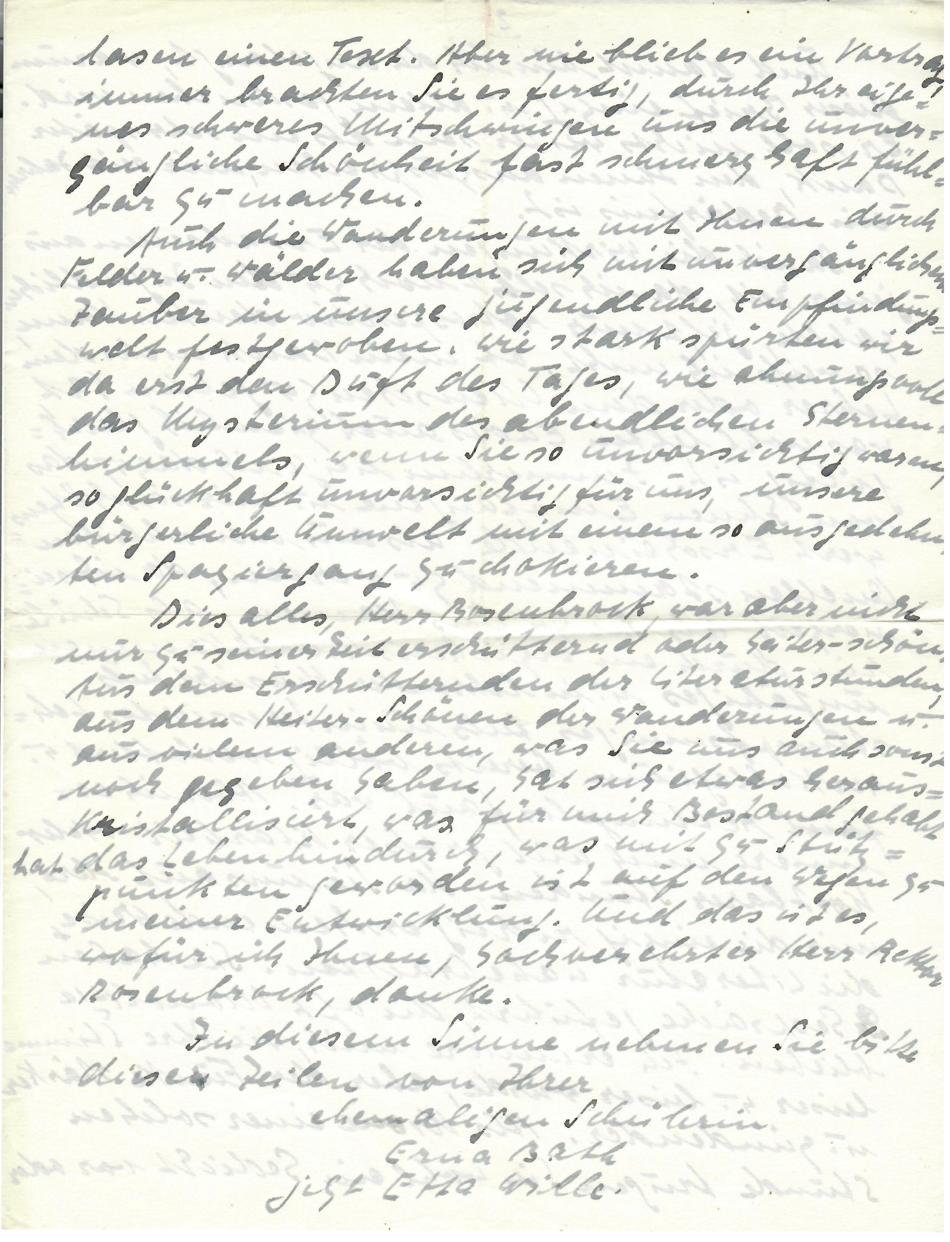 lasen einen Text. Aber nie blieb es ein Vortrag,
immer brachten Sie es fertig, durch Ihr eige=
nes schweres Mitschwingen uns die unver=
gängliche Schönheit fast schmerzhaft fühl=
bar zu machen.
Auch die Wanderungen mit Ihnen durch
Felder u. Wälder haben sich mit unvergänglichem
Zauber in unsere jugendliche Empfindungs=
welt festgewoben. Wie stark spürten wir
da erst den Duft des Tages, wie ahnungsvoll
das Mysterium des abendlichen Sternen=
himmels, wenn Sie so unvorsichtig waren,
so glückhaft unvorsichtig für uns, unsere
bürgerliche Umwelt mit einem so ausgedehn
ten Spaziergang zu chokieren.
Dies alles, Herr Rosenbrock, war aber nicht
nur zu seiner Zeit erschütternd oder heiter-schön.
Aus dem Erschütternden der Literaturstunden,
aus dem Heiter-Schönen der Wanderungen u.
aus vielem anderen, was Sie uns auch sonst
noch gegeben haben, hat sich etwas heraus=
kristallisiert, was für mich Bestand gehabt
hat das Leben hindurch, was mit zu Stütz=
punkten geworden ist auf den Wegen zu
meiner Entwicklung. Und das ist es,
wofür ich Ihnen, hochverehrter Herr Rektor
Rosenbrock, danke.
In diesem Sinne nehmen Sie bitte
diese Zeilen von Ihrer
ehemaligen Schülerin
Erna Bath
jetzt Etta Wille.